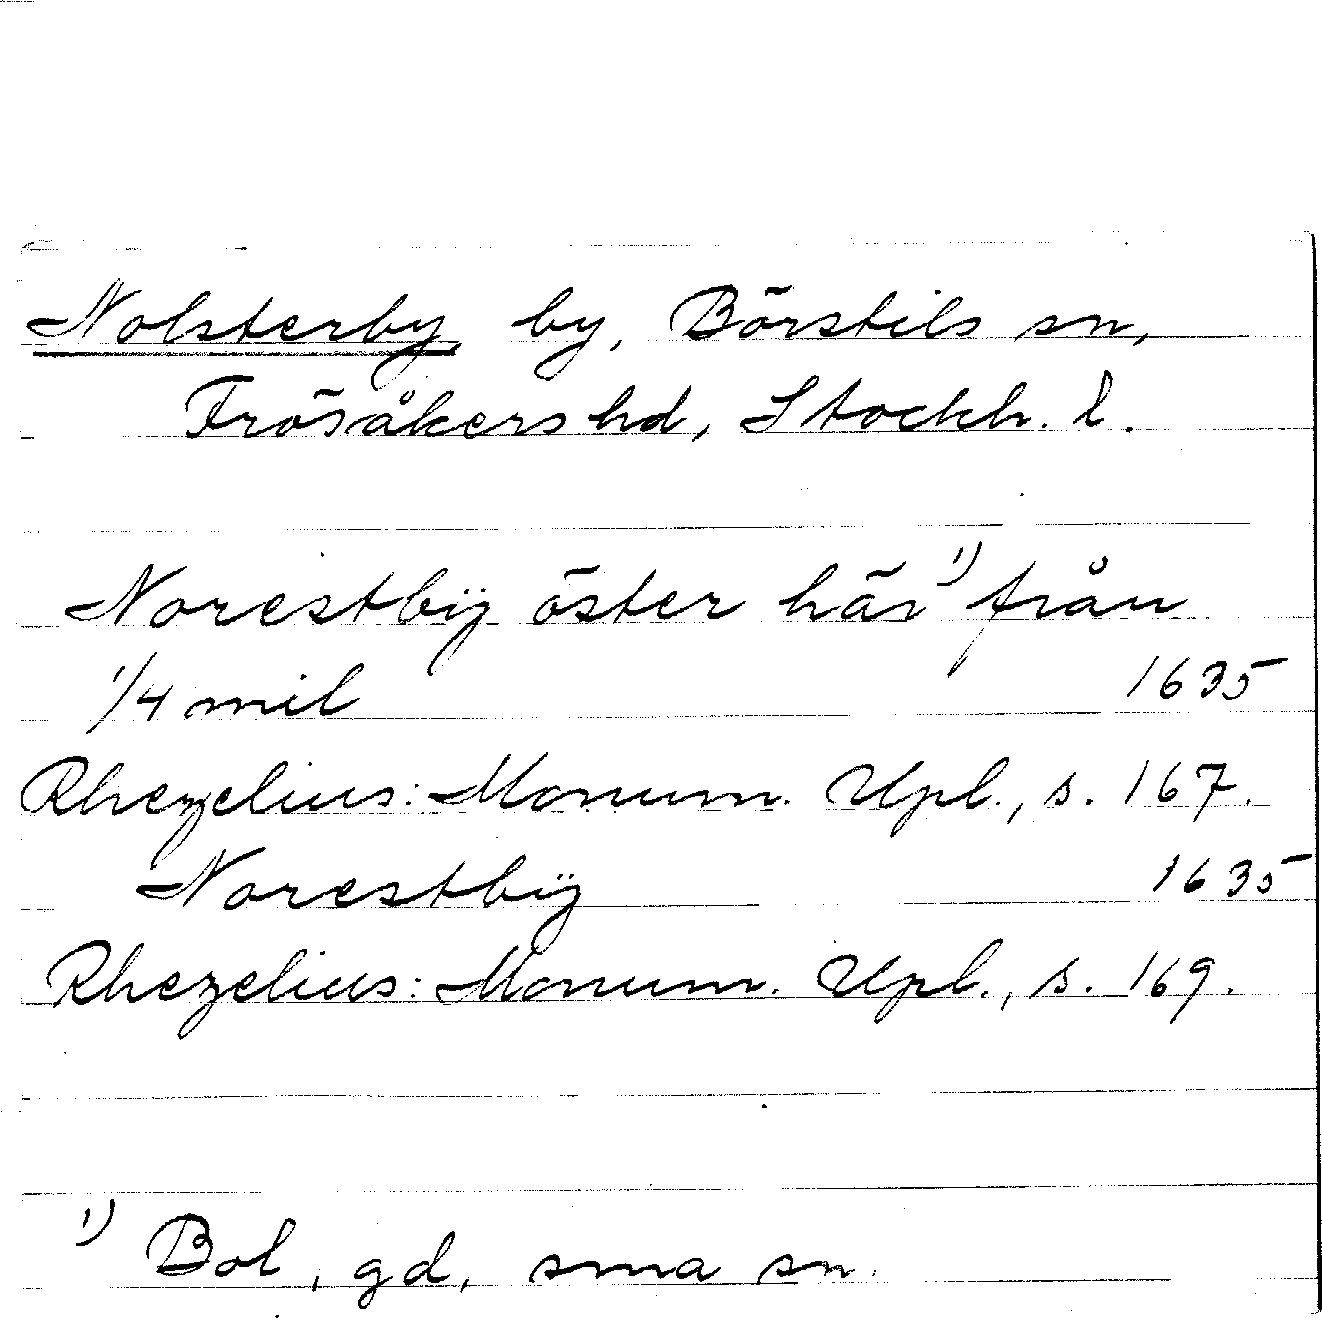 Nolsterby, by, Börstils sn,
Frösåkers hd, Stockh. l.
Norestbÿ öster här¹⁾ från
1/4 mil 1635
Rhezelius: Monum. Upl., s. 167.
Norestbÿ 1635
Rhezelius: Monum. Upl., s. 169.
¹⁾ Bol, gd, sma sn.